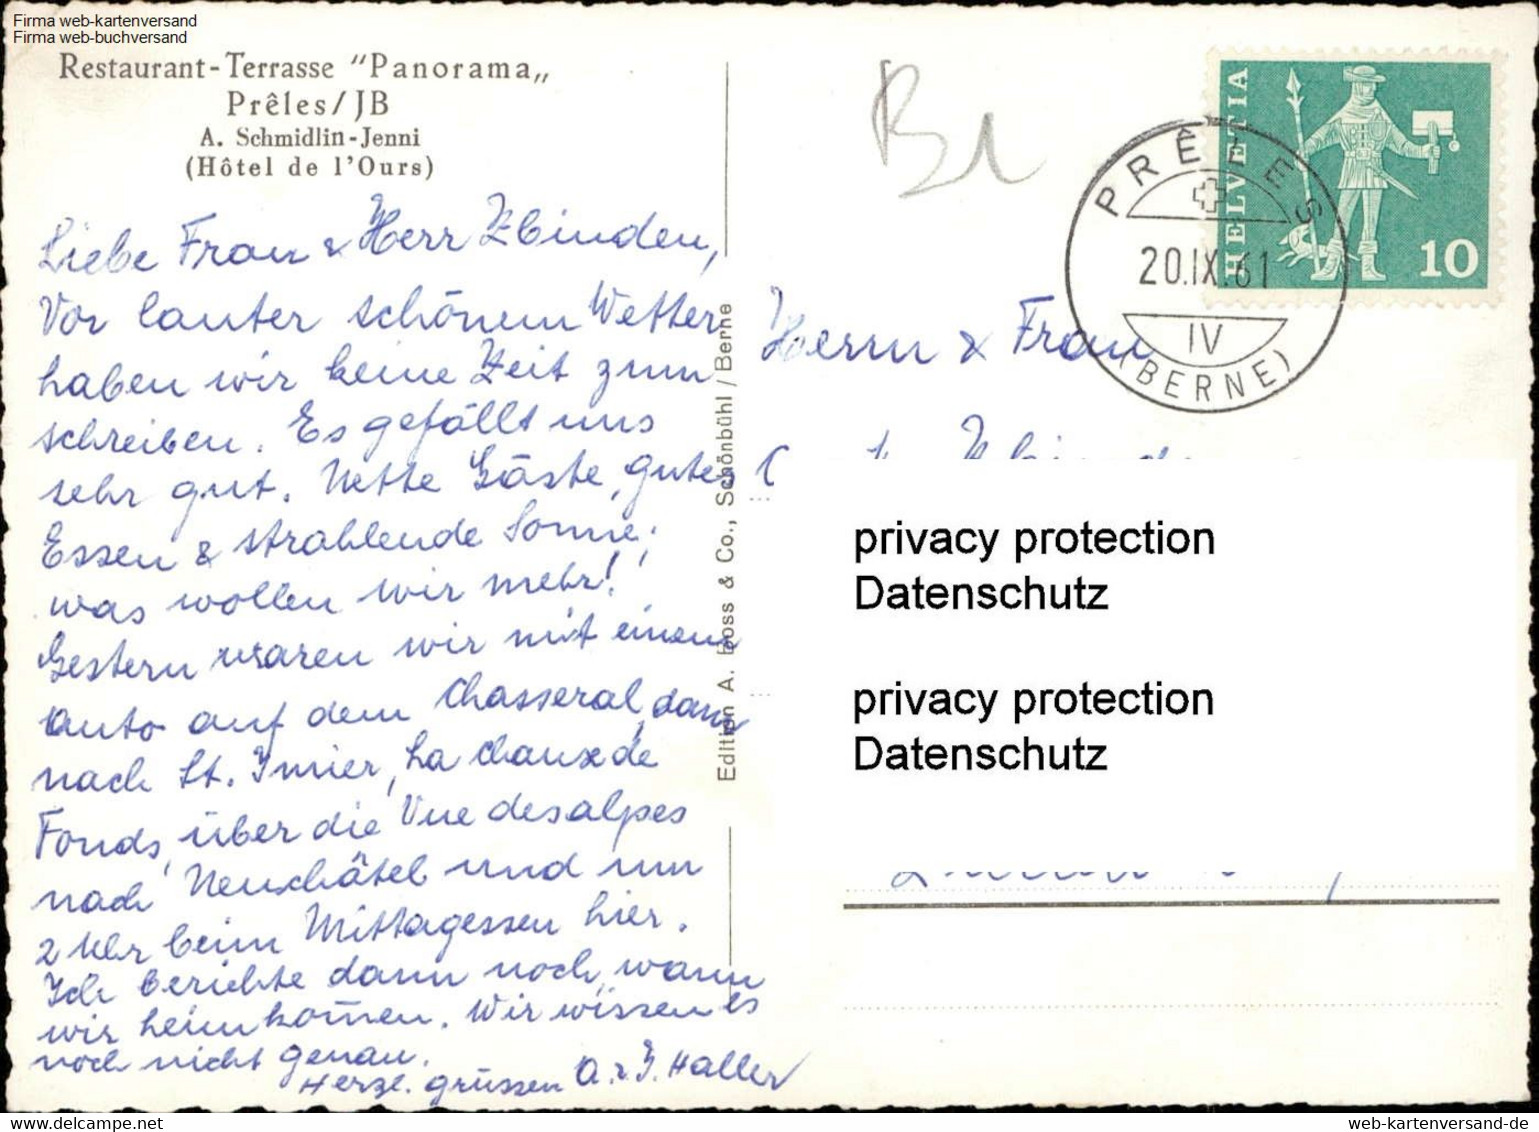 Firma web-kartenversand
Firma web-buchversand
Restaurant-Terrasse "Panorama„
Prêles/JB
A. Schmidlin-Jenni
(Hôtel de l'Ours)
Liebe Frau & Herr Zbinden,
Vor lauter schönem Wetter
haben wir keine Zeit zum
schreiben. Es gefällt uns
sehr gut. Nette Gäste, gutes
Essen & strahlende Sonne;
was wollen wir mehr!
Gestern waren wir mit einem
Auto auf dem Chasseral, dann
nach St. Imier, La Chaux de
Fonds, über die Vue des alpes
nach Neuchâtel und um
2 Uhr beim Mittagessen hier.
Ich berichte dann noch, wann
wir heimkom̄en. Wir wissen es
noch nicht genau.
Herzl. grüssen A. & J. Haller
Edition A. Boss & Co., Schönbühl / Berne
HELVETIA
10
PRÊLES
20.IX.61
IV
(BERNE)
Herrn & Frau
Zbinden
privacy protection
Datenschutz
privacy protection
Datenschutz
web-kartenversand-de